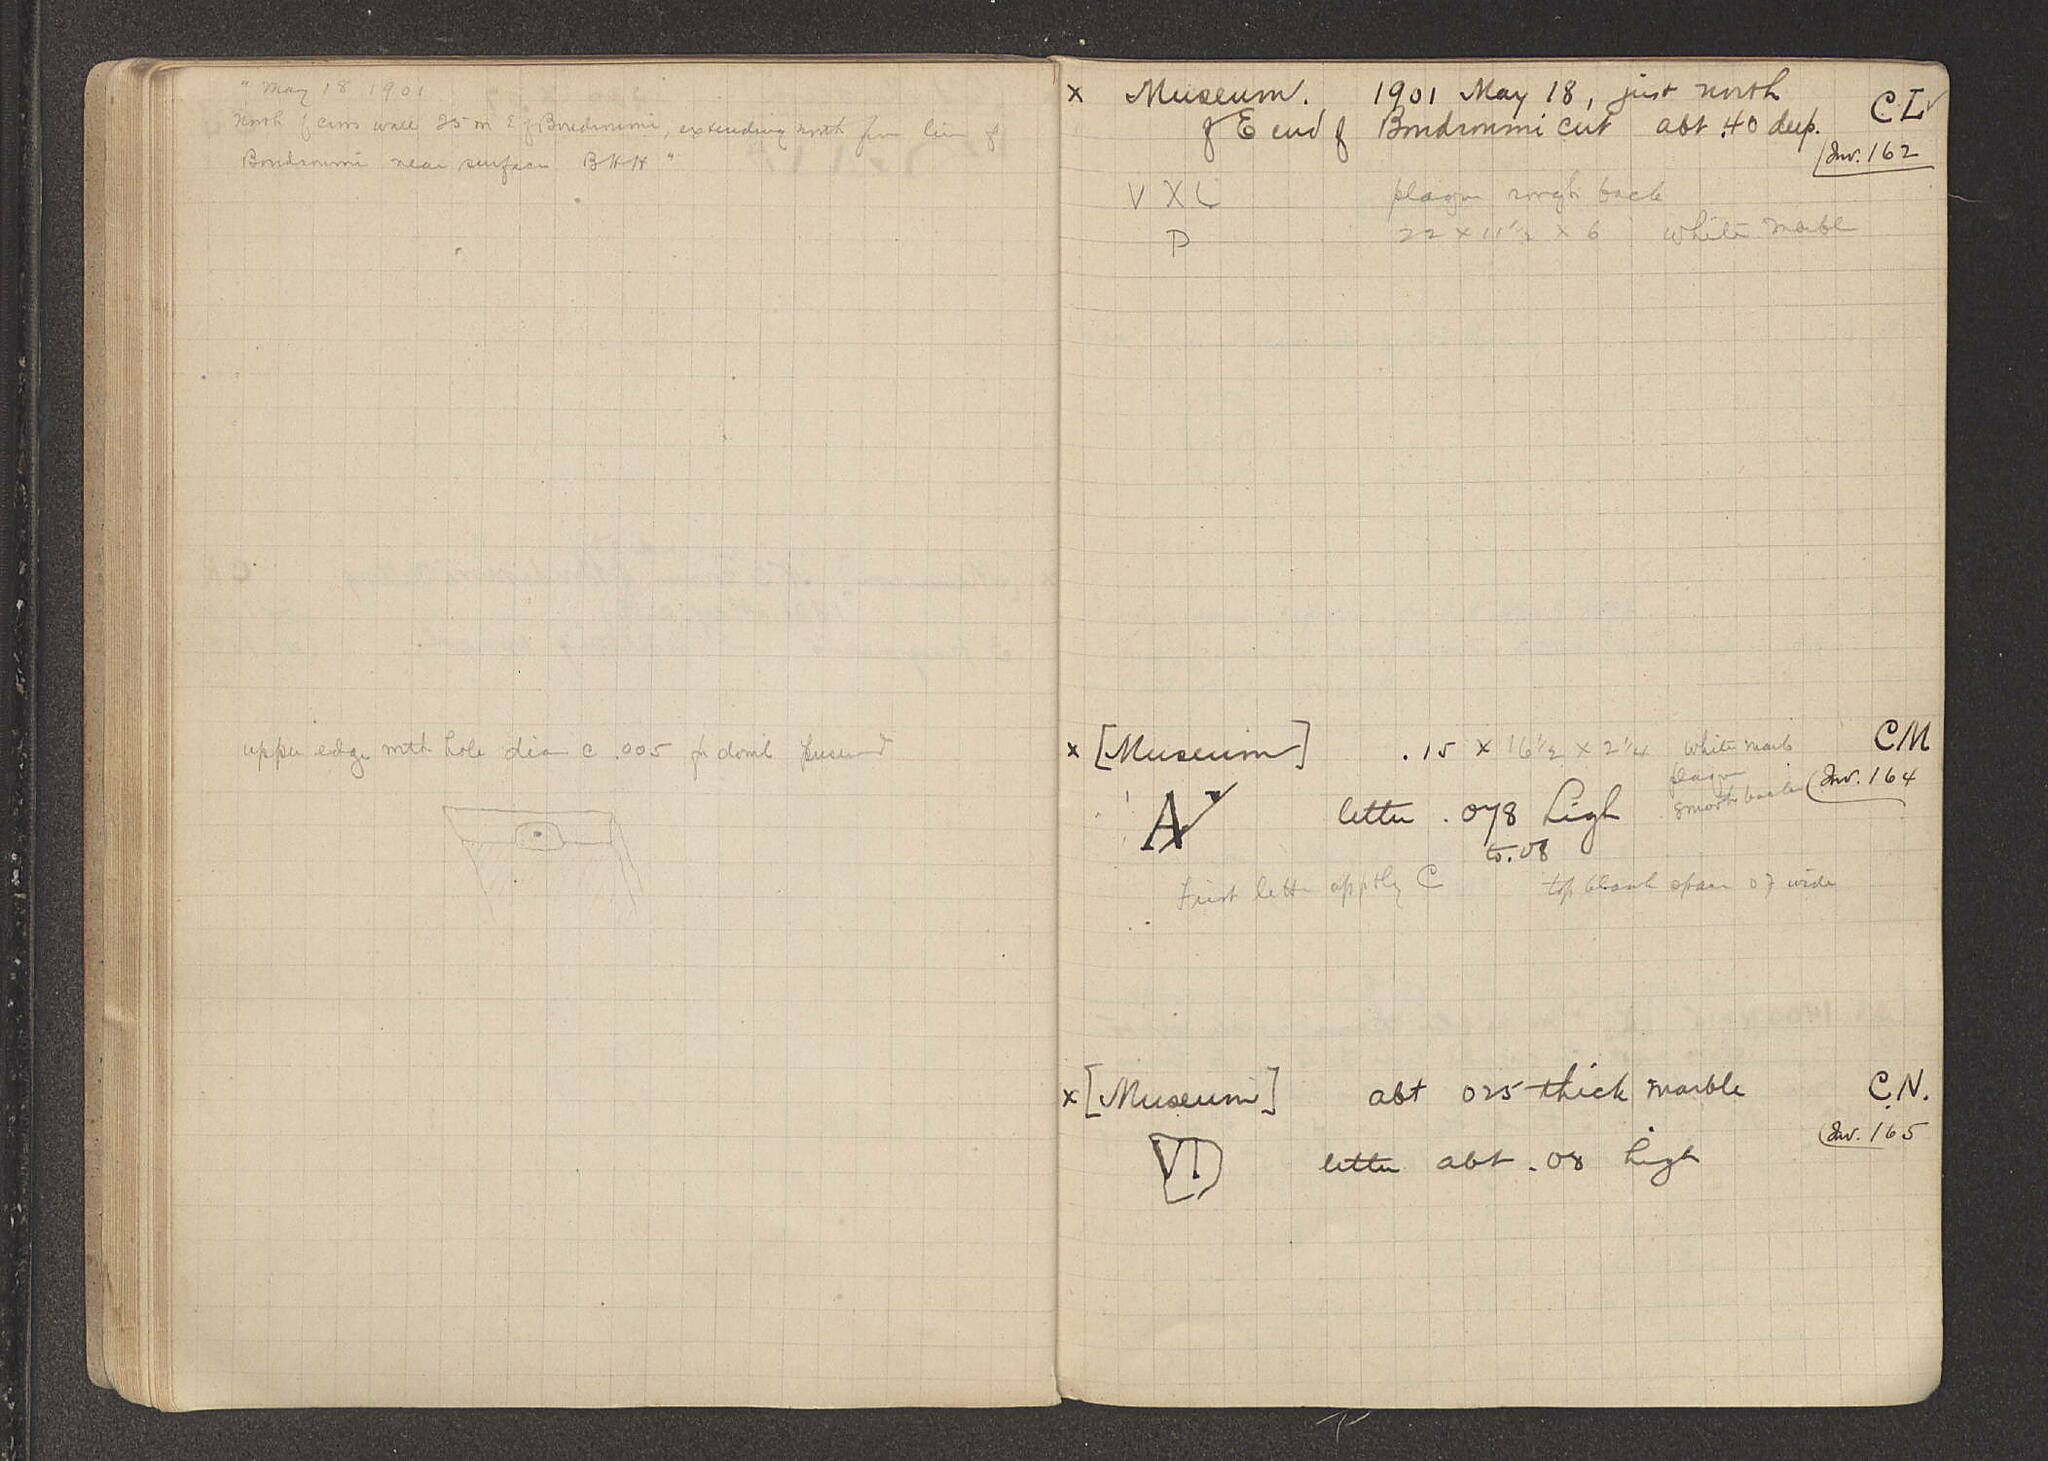 " May 18 1901
North of cross wall 25 m E of Boudroumi, extending north from line of
Boudroumi near surface BHH "
upper edge with hole dia c .005 for dowel
x Museum. 1901 May 18, just north CL
of E end of Boudroumi cut abt .40 deep.
Inv. 162
V X L plaque rough back
P 22 x 11 1/2 x 6 white marble
x [Museum] .15 x 16 1/2 x 2 1/4 white marb CM
plaque Inv. 164
A letter .078 high smooth back
to .08
First letter apptly C top blank space 07 wide
x [Museum] abt 025 thick marble C.N.
Inv. 165
VI letter abt .08 high